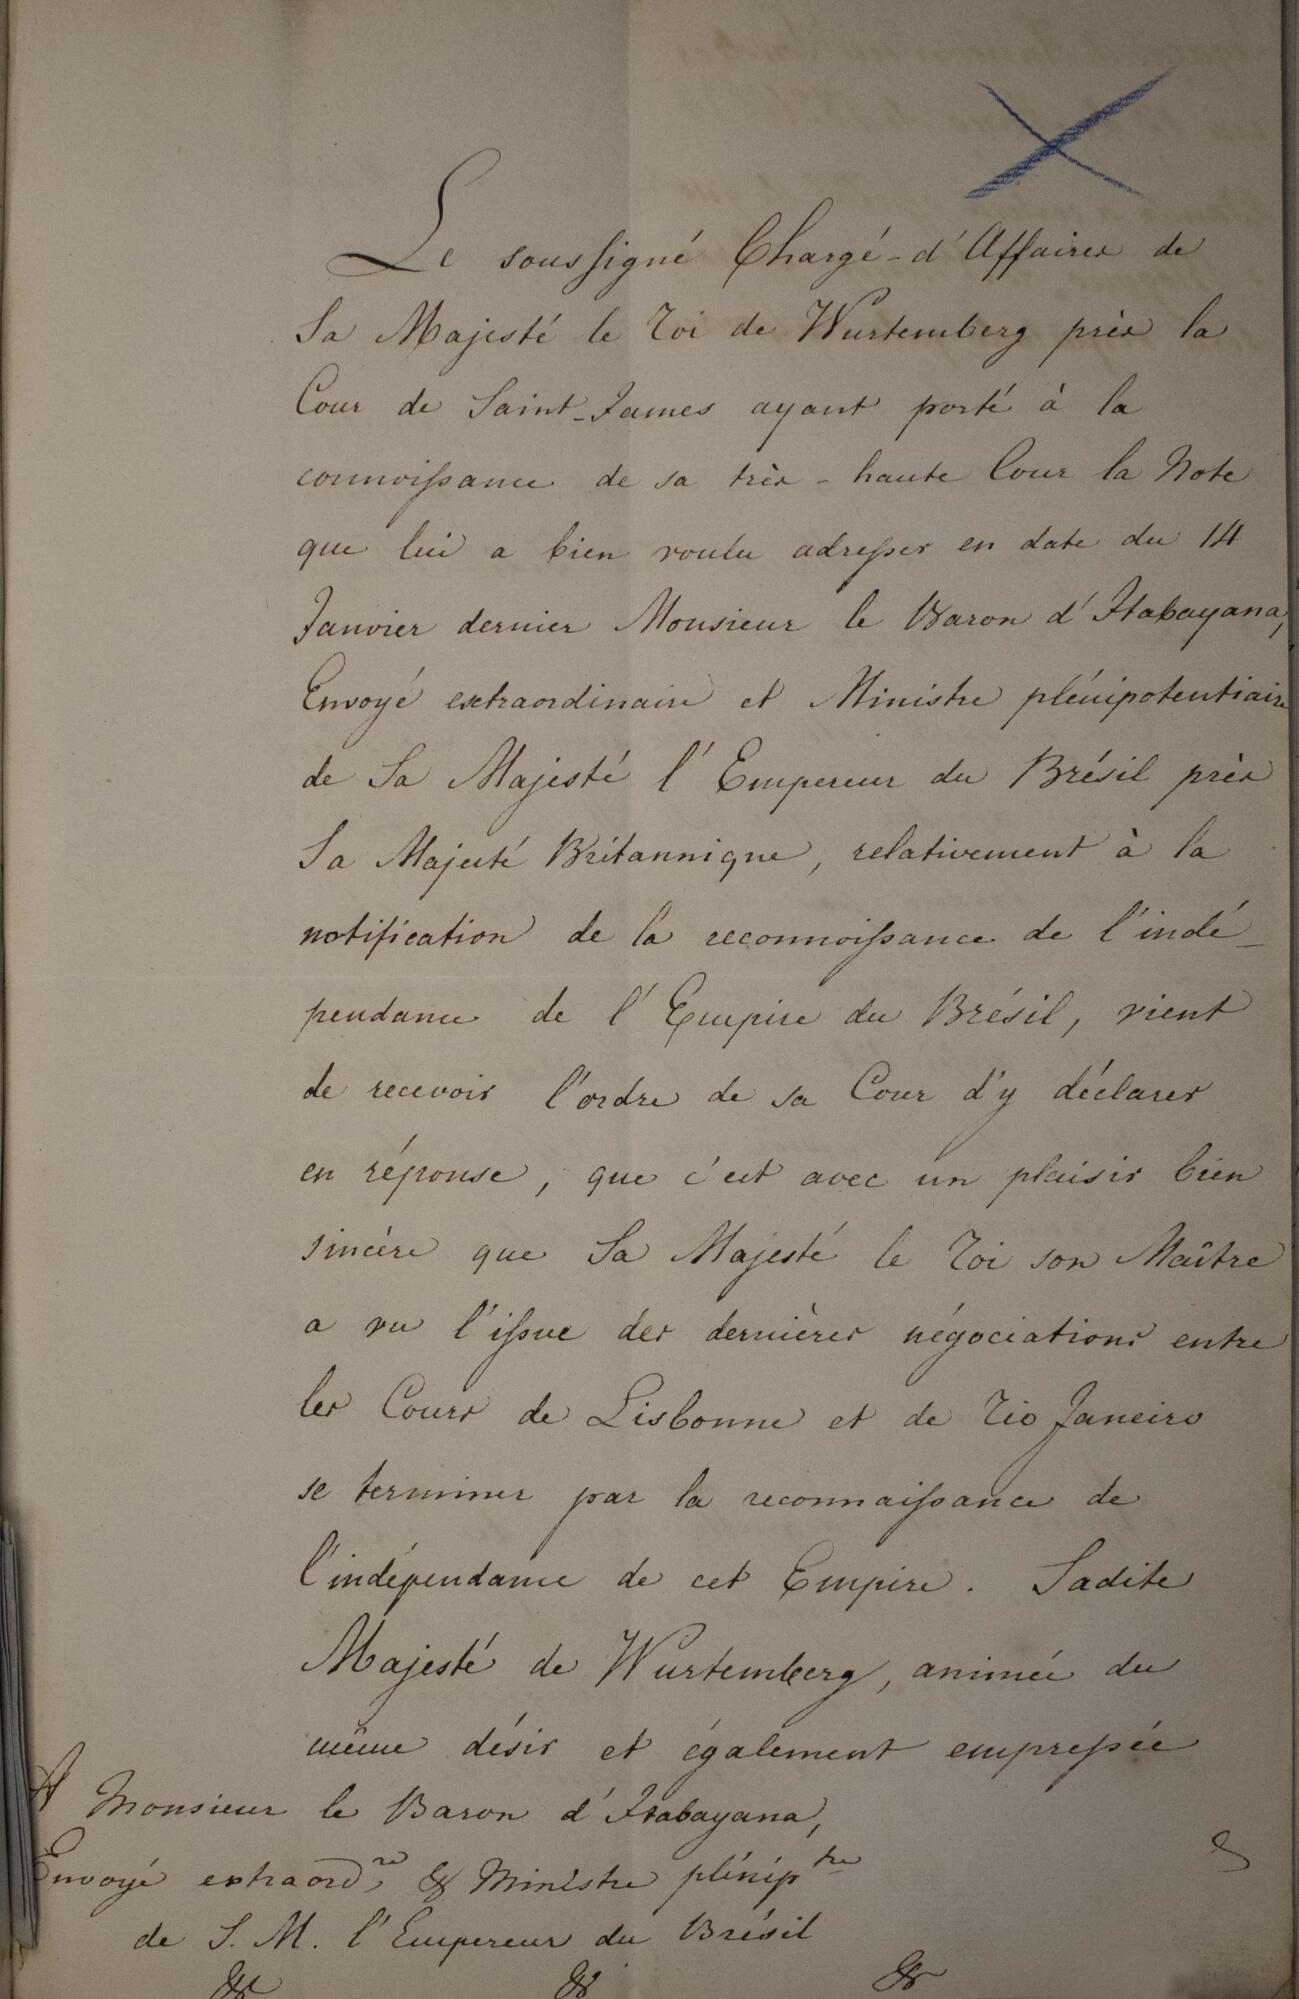 Le soussigné Chargé-d'Affaires de
Sa Majesté le Roi de Wurtemberg près la
Cour de Saint-James ayant porté à la
connoissance de sa très-haute Cour la Note
que lui a bien voulu adresser en date du 14
Janvier dernier Monsieur le Baron d'Itabayana,
Envoyé extraordinaire et Ministre plénipotentiaire
de Sa Majesté l'Empereur du Brésil près
Sa Majesté Britannique, relativement à la
notification de la reconnoissance de l'indé-
pendance de l'Empire du Brésil, vient
de recevoir l'ordre de sa Cour d'y déclarer
en réponse, que c'est avec un plaisir bien
sincère que Sa Majesté le Roi son Maître
a vu l'issue des dernières négociations entre
les Cours de Lisbonne et de Rio Janeiro
se terminer par la reconnaissance de
l'indépendance de cet Empire. Sadite
Majesté de Wurtemberg, animée du
même désir et également empressée
A Monsieur le Baron d'Itabayana,
Envoyé extraord.re & Ministre plénip.tre
de S. M. l'Empereur du Brésil
& & &